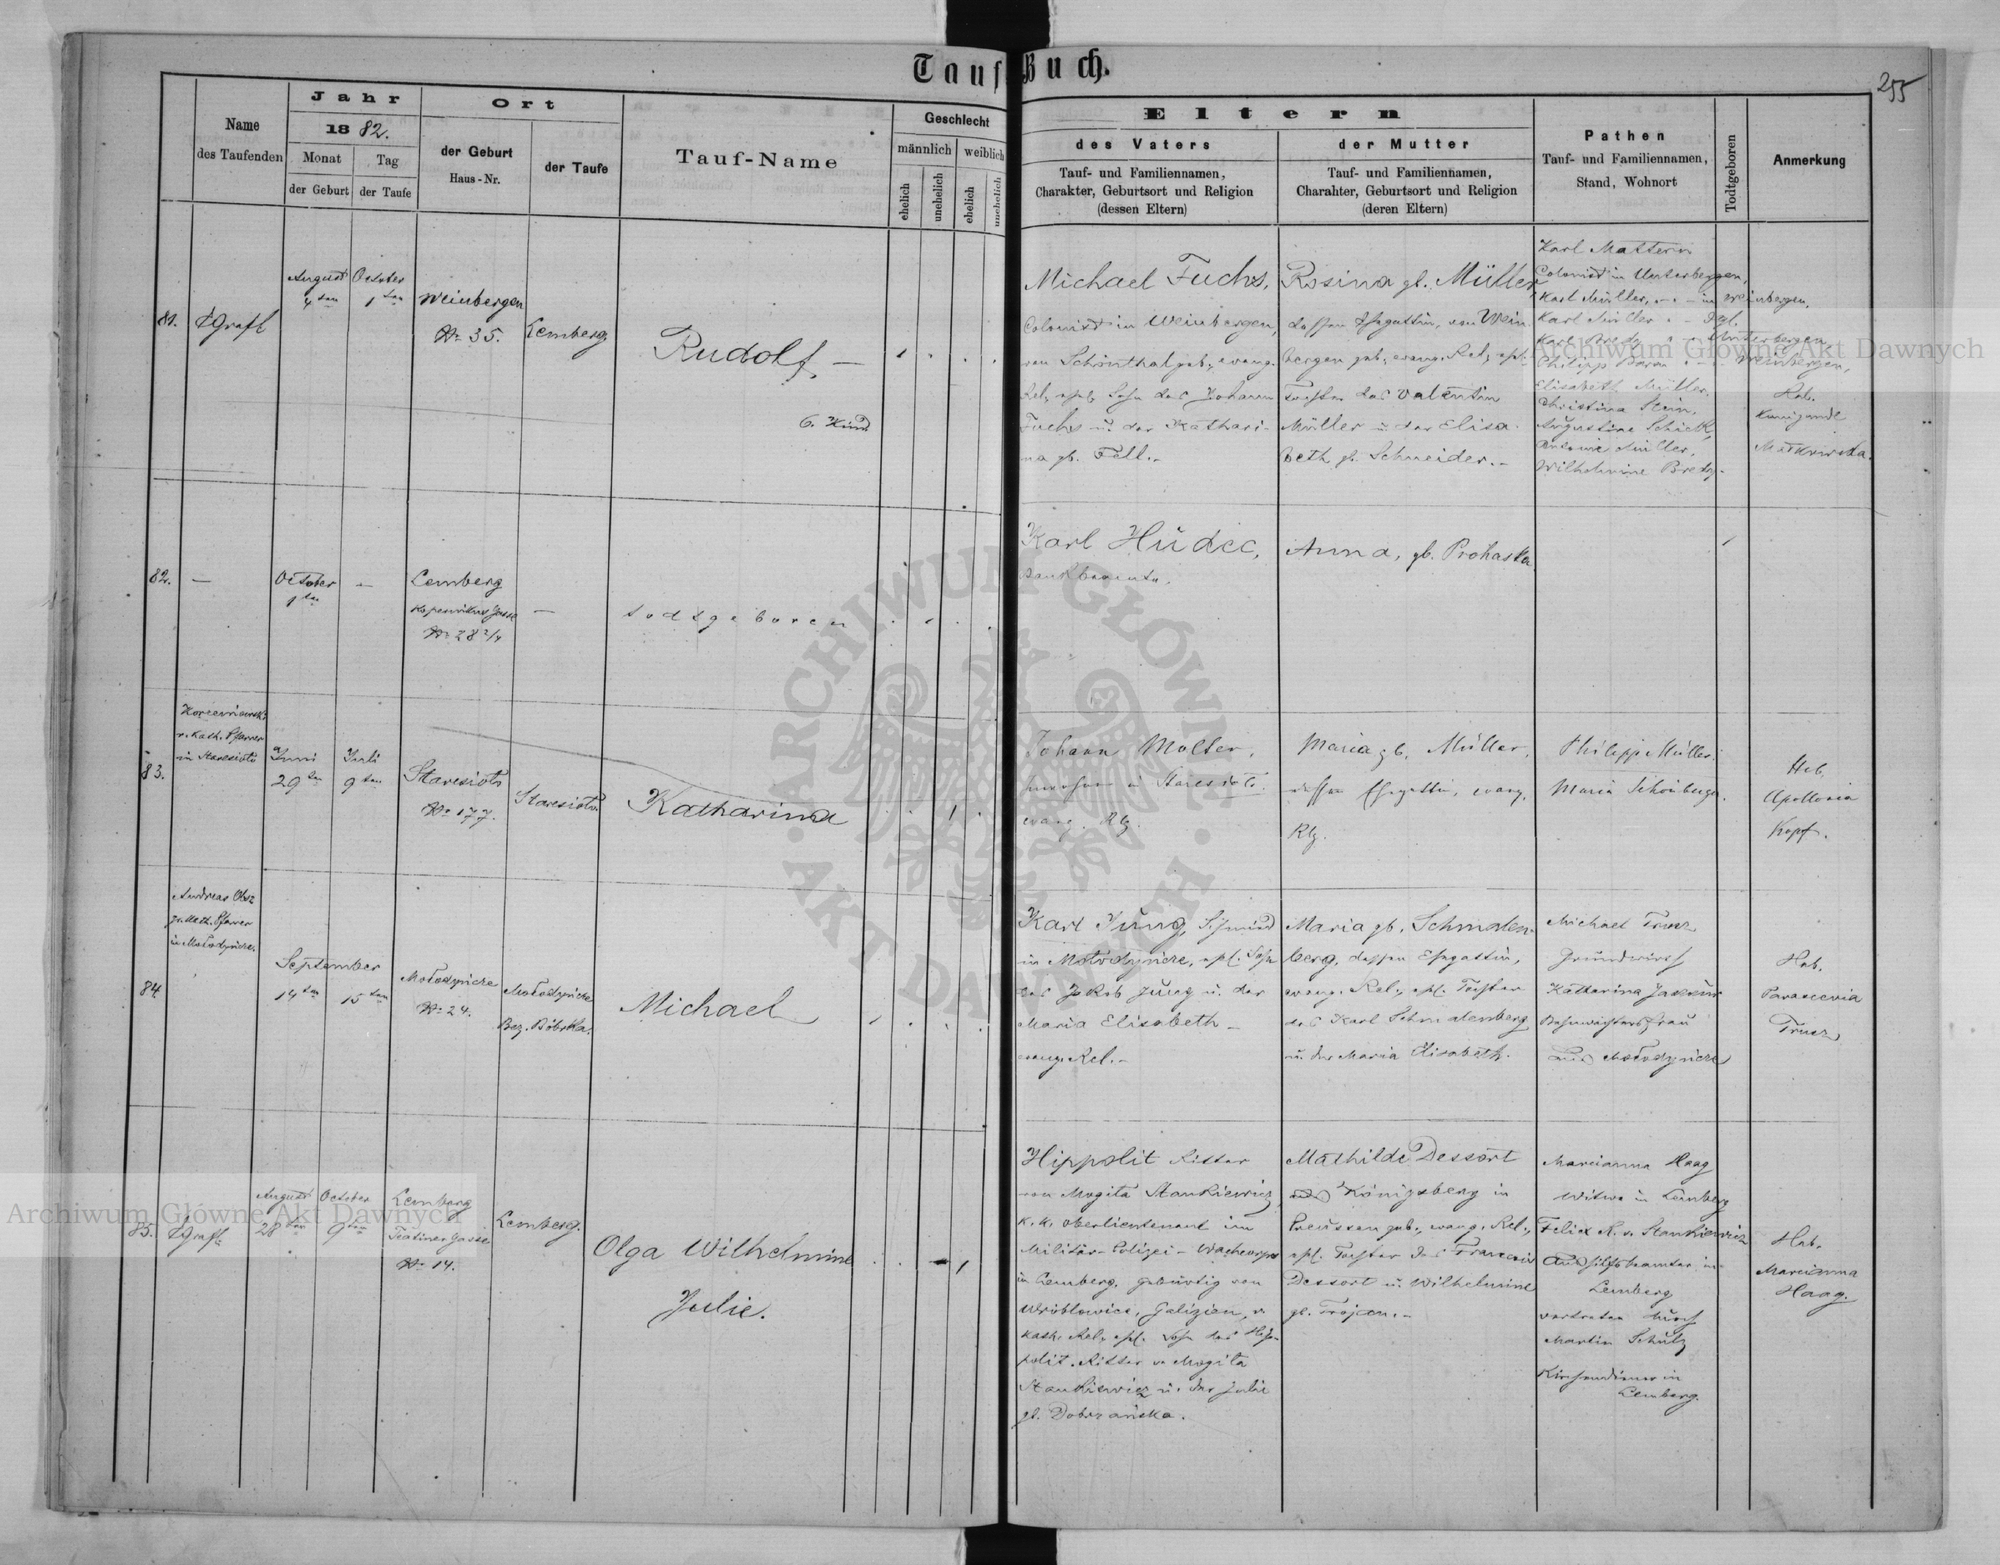 Tauf Buch.
255
Name
des Taufenden
Jahr
1882.
Monat
Tag
der Geburt
der Taufe
Ort
der Geburt
Haus-Nr.
der Taufe
Tauf-Name
Geschlecht
männlich
weiblich
ehelich
unehelich
ehelich
unehelich
Eltern
des Vaters
Tauf- und Familiennamen,
Charakter, Geburtsort und Religion
(dessen Eltern)
der Mutter
Tauf- und Familiennamen,
Charahter, Geburtsort und Religion
(deren Eltern)
Pathen
Tauf- und Familiennamen,
Stand, Wohnort
Todtgeboren
Anmerkung
81.
August
4ten
October
1ten
Weinbergen
Nr 35.
Lemberg
Rudolf
6. Kind
Michael Fuchs,
Colonist in Weinbergen,
von Schönthal geb., evang.
Rel., ehel. Sohn des Johann
Fuchs u. der Kathari-
na gb. Fell.-
Rosina gb. Müller,
dessen Ehegattin, von Wein
bergen geb., evang. Rel., ehel.
Tochter des Valentin
Müller u der Elisa-
beth gb. Schneider.-
Karl Mattern
Colonist in Unterbergen,
Karl Müller, - - in Weinbergen.
Karl Müller
Unterbergen
Weinbergen,
Elisabeth Müller.
Christina Stein.
Augustine
Antonie Müller.
Wilhelmine Bredy.
Heb.
Kunigunde
82.
October
1ten
Lemberg
Kopernikus Gasse
Nr 28 2/4
todtgeboren
Karl Hudec,
Bankbeamte.
Anna, gb. Prohaska
83.
r. kath. Pfarrer
in Staresioło
Juni
29ten
Juli
9ten
Staresioło
Nr 177.
Staresioło
Katharina
Johann Molter,
in Staresioło.
evang. Rlg.
Maria gb. Müller,
dessen Ehegattin, evang.
Rlg.
Philipp Müller.
Maria Schönberger.
Heb.
Apollonia
Kopf.
84
Andreas
Pfarrer
in Mołodyńcze.
September
14ten
15ten
Mołodyńcze
Nr 24.
Mołodyńcze
Bez. Bóbrka.
Michael
Karl Jung, Schmied
in Mołodyńcze, ehel. Sohn
des Jakob Jung u. der
Maria Elisabeth -
evang. Rel.-
Maria gb. Schmalen-
berg, dessen Ehegattin,
evang. Rel., ehel. Tochter
des Karl Schmalenberg
u. der Maria Elisabeth.
Michael
Grundwirth
Katharina
Bahnwächtersfrau
aus Mołodyńcze
Heb.
Parascevia
85.
August
28ten
October
9ten
Lemberg
Teatiner Gasse
Nr 14.
Lemberg.
Olga Wilhelmine
Julie.
Hippolit Ritter
von Mogita Stankiewicz
k. k. Oberlieutenant im
Militär-Polizei-Wachcorps
in Lemberg, gebürtig von
Wróblowice, Galizien, r.
kath. Rel., ehel. Sohn des Hip-
polit Ritter v. Mogita
Stankiewicz u. der Julie
gb. Dobrzańska.
Mathilde Dessort
aus Königsberg in
Preussen geb., evang. Rel.,
ehel. Tochter des Francois
Dessort u. Wilhelmine
gb. Trojan.-
Marianna Haag
Witwe in Lemberg
Felix R. v. Stankiewicz
in
Lemberg
vertreten durch
Martin Schulz
Kirchendiener in
Lemberg.
Heb.
Marianna
Haag.
Archiwum Główne Akt Dawnych
Archiwum Główne Akt Dawnych
ARCHIWUM GŁÓWNE · AKT DAWNYCH ·